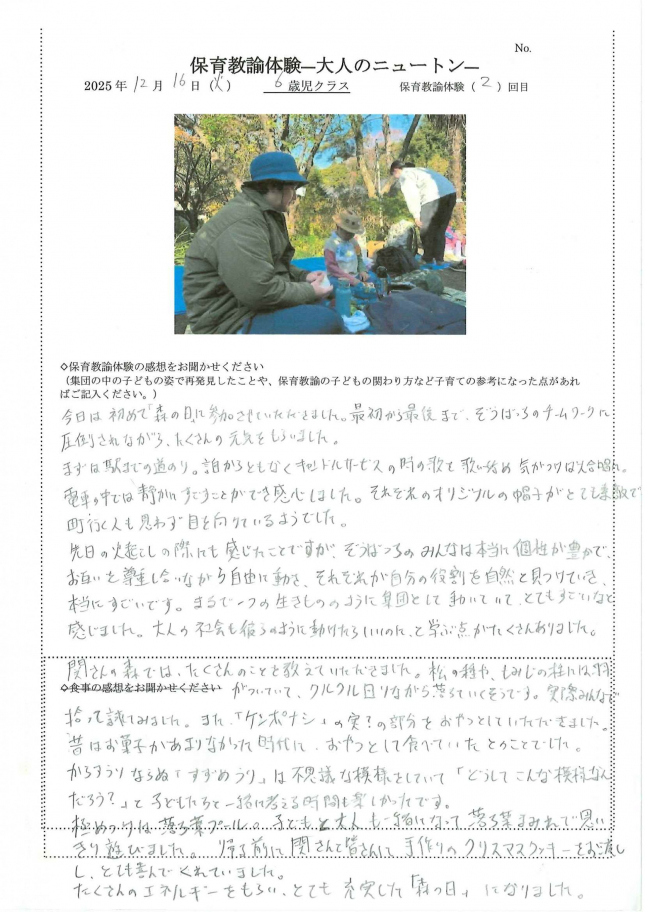 No.
保育教諭体験―大人のニュートン―
2025年 12月 16日(火) 6歳児クラス 保育教諭体験(2)回目
◇保育教諭体験の感想をお聞かせください
(集団の中の子どもの姿で再発見したことや、保育教諭の子どもの関わり方など子育ての参考になった点があれ
ばご記入ください。)
今日は初めて「森の日」に参加させていただきました。最初から最後まで、ぞうばっちのチームワークに
圧倒されながら、たくさんの元気をもらいました。
まずは駅までの道のり。誰からともなくキャンドルサービスの時の歌を歌い始め 気がつけば大合唱に。
電車の中では静かにすごすことができ感心しました。それぞれのオリジナルの帽子がとても素敵で
町行く人も思わず目を向けているようでした。
先日の火起こしの際にも感じたことですが、ぞうばっちのみんなは本当に個性が豊かで、
お互いを尊重し合いながら自由に動き、それぞれが自分の役割を自然と見つけていき、
本当にすごいです。まるで一つの生きもののように集団として動いていて、とてもすごいなと
感じました。大人の社会も毎日のように動けたらいいのに、と学ぶ点がたくさんありました。
関さんの森では、たくさんのことを教えていただきました。松の種や、もみじの種には羽
◇食事の感想をお聞かせください
がついていて、クルクル回りながら落ちていくそうです。実際みんなで
拾って試してみました。また、「ケンポナシ」の実?の部分をおやつとしていただきました。
昔はお菓子があまりなかった時代に、おやつとして食べていたとのことでした。
からすうりならぬ「すずめうり」は不思議な模様をしていて「どうしてこんな模様なん
だろう?」と子どもたちと一緒に考える時間も楽しかったです。
極めつけは落ち葉プール。子どもと大人も一緒になって落ち葉まみれで思い
きり遊びました。帰る前に関さんと皆さんに手作りのクリスマスクッキーをお渡し
し、とても喜んでくれていました。
たくさんのエネルギーをもらい、とても充実した「森の日」になりました。